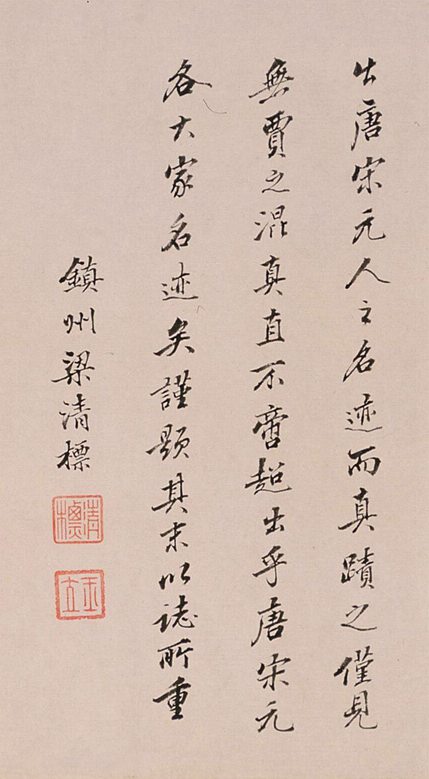 出唐宋元人之名迹而真蹟之僅見
無賈之混真直不啻超出乎唐宋元
各大家名迹矣謹題其末以誌所重
鎮州梁清標
清標
玉立